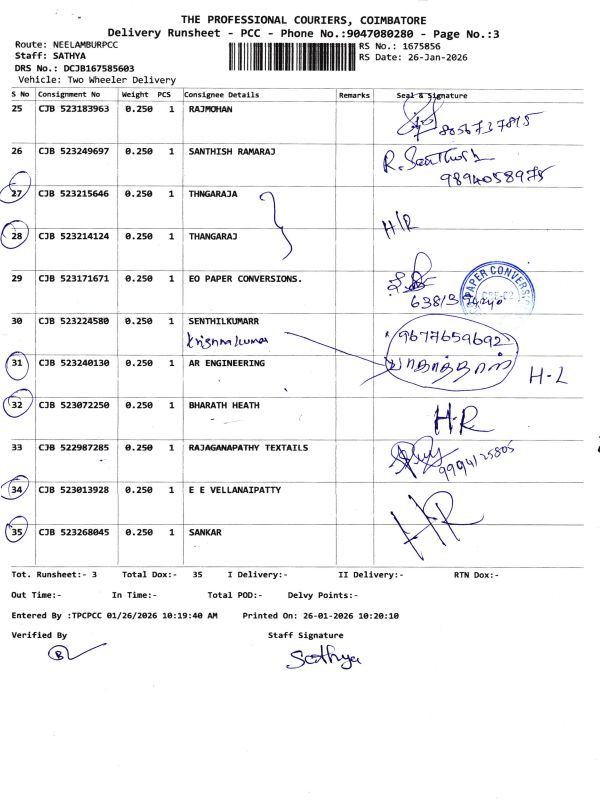 THE PROFESSIONAL COURIERS, COIMBATORE
Delivery Runsheet - PCC - Phone No.:9047080280 - Page No.:3
Route: NEELAMBURPCC
RS No.: 1675856
Staff: SATHYA
RS Date: 26-Jan-2026
DRS No.: DCJB167585603
Vehicle: Two Wheeler Delivery
S No Consignment No Weight PCS Consignee Details Remarks Seal & Signature
25 CJB 523183963 0.250 1 RAJMOHAN
8056737815
26 CJB 523249697 0.250 1 SANTHISH RAMARAJ R. Santhosh
9894058975
27 CJB 523215646 0.250 1 THNGARAJA
H/R
28 CJB 523214124 0.250 1 THANGARAJ
29 CJB 523171671 0.250 1 EO PAPER CONVERSIONS.
PAPER CONVERSIONS
30 CJB 523224580 0.250 1 SENTHILKUMARR 9677659692
Krishnakumar
31 CJB 523240130 0.250 1 AR ENGINEERING H-L
32 CJB 523072250 0.250 1 BHARATH HEATH H-R
33 CJB 522987285 0.250 1 RAJAGANAPATHY TEXTAILS 9994125805
34 CJB 523013928 0.250 1 E E VELLANAIPATTY
HR
35 CJB 523268045 0.250 1 SANKAR
Tot. Runsheet:- 3 Total Dox:- 35 I Delivery:- II Delivery:- RTN Dox:-
Out Time:- In Time:- Total POD:- Delvy Points:-
Entered By :TPCPCC 01/26/2026 10:19:40 AM Printed On: 26-01-2026 10:20:10
Verified By Staff Signature
B Sathya